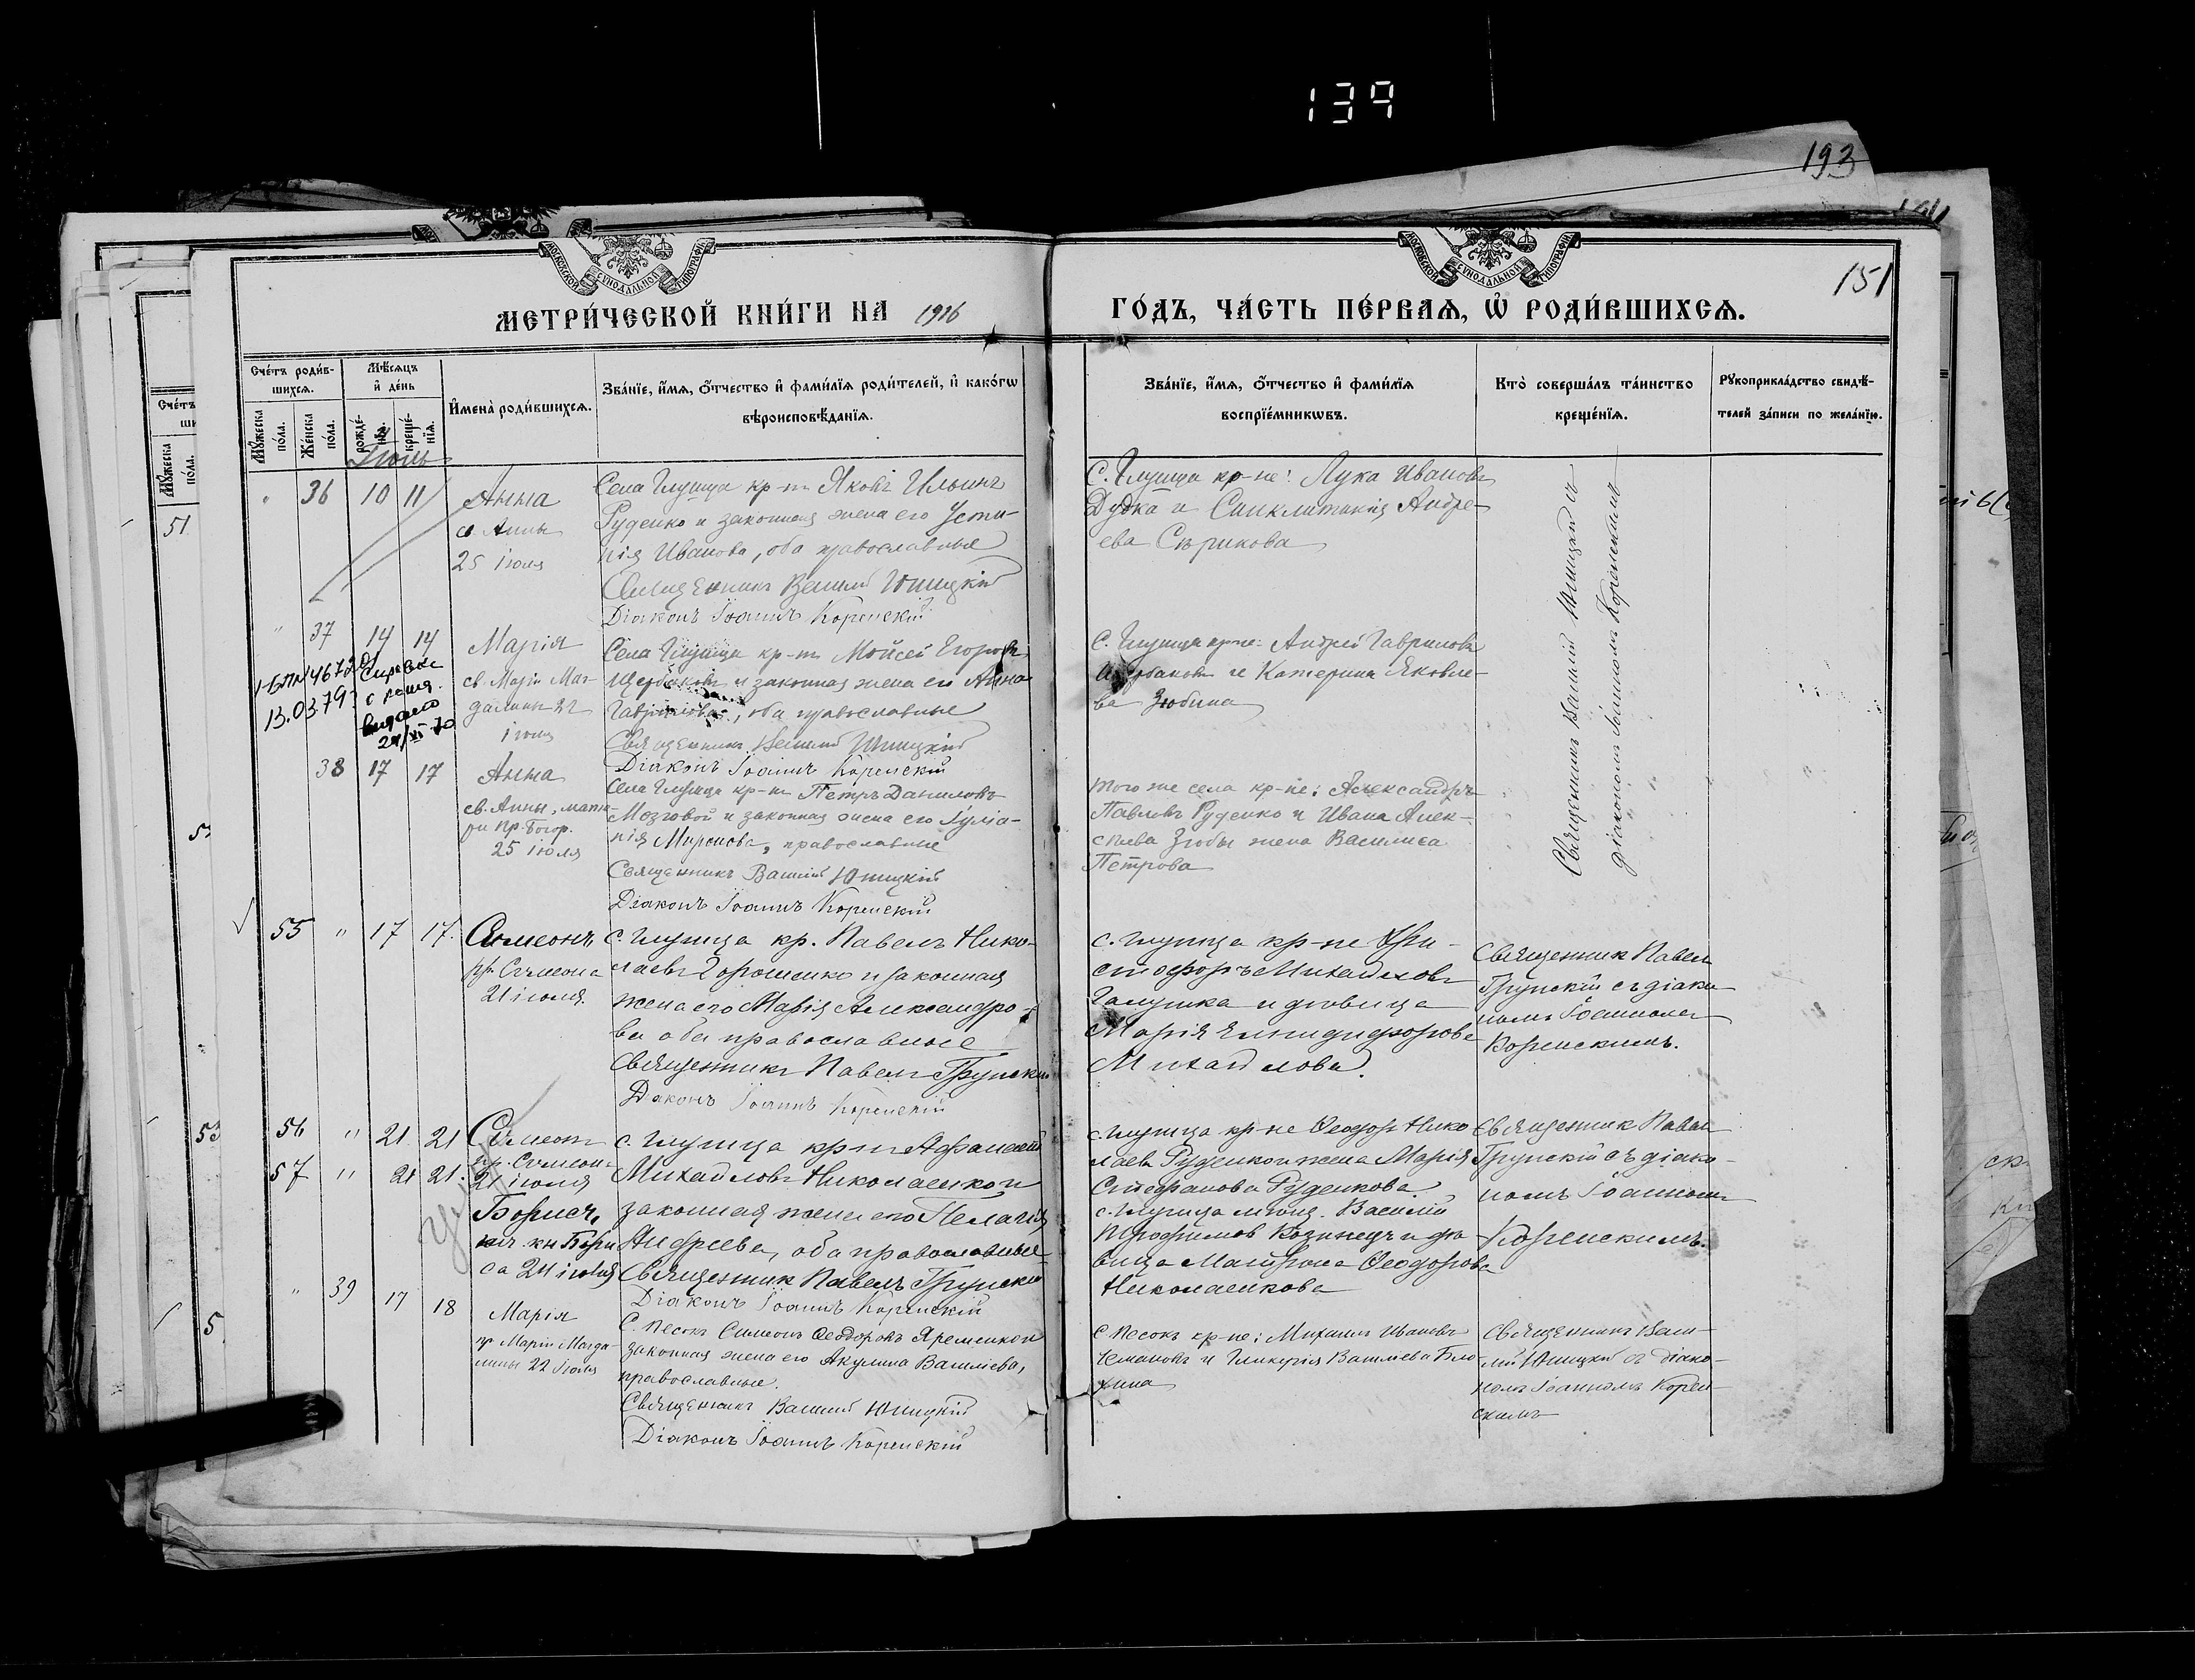 139
193
151
МОСКОВСКОЙ СѴНОДАЛЬНОЙ ТИПОГРАФІИ
МОСКОВСКОЙ СѴНОДАЛЬНОЙ ТИПОГРАФІИ
МЕТРИ́ЧЕСКОЙ КНИ́ГИ НА 1916
ГО́ДЪ, ЧА́СТЬ ПЕ́РВАЯ, Ѽ РОДИ́ВШИХСЯ.
Сче́тъ роди́в-
шихся.
Мѣ́сяцъ
и҆ де́нь
Му́жеска
по́ла.
Же́нска
по́ла.
рожде́-
нія.
креще́-
нія.
И҆мена̀ роди́вшихся.
Зва́ніе, и҆́мя, ѻ҆́тчество и҆ фами́лія роди́телей, и҆ како́гѡ
вѣроисповѣ́данія.
Зва́ніе, и҆́мя, ѻ҆́тчество и҆ фами́лія
воспріе́мникѡвъ.
Кто̀ соверша́лъ та́инство
креще́нія.
Рꙋкоприкла́дство свидѣ́-
телей за́писи по жела́нію.
Іюль
36 10 11 Анна
св Анны
25 іюля
Села Глушца кр-нъ Яковъ Ильинъ
Руденко и законная жена его Усти-
нія Иванова, оба православные
Священникъ Василій Юшицкій
Діаконъ Іоаннъ Коренскій
С. Глушца кр-не: Лука Ивановъ
Дудка и Синклитикія Андре-
ева Сѣрикова
Священникъ Василій Юшицкій съ
діакономъ Іоанномъ Коренскимъ
37 14 14 Марія
св. Маріи Маг-
далины 22
іюля
Села Глушца кр-нъ Мойсей Егоровъ
Щербаковъ и законная жена его Анна
Гаврилова, оба православные
Священникъ Василій Юшицкій
Діаконъ Іоаннъ Коренскій
С. Глушца кр-не: Андрей Гавриловъ
Щербаковъ и Катерина Яковле-
ва Зюбина
выдано
38 17 17 Анна
св. Анны, мате-
ри Пр. Богор.
25 іюля
Села Глушца кр-нъ Петръ Даниловъ
Мозговой и законная жена его Іуліа-
нія Миронова, православные
Священникъ Василій Юшицкій
Діаконъ Іоаннъ Коренскій
того же села кр-не: Александръ
Павловъ Руденко и Ивана Алек-
сѣева Згобы жена Василиса
Петрова
55 " 17 17. Симеонъ,
пр. Симеона
21 іюля.
с. Глушца кр. Павелъ Нико-
лаевъ Горошенко и законная
жена его Марія Александро-
ва оба православные
Священникъ Павелъ Грунскій
Діаконъ Іоаннъ Коренскій
с. Глушца кр-не Хри-
стофоръ Михайловъ
Галушка и дѣвица
Марія Елпидифорова
Михайлова.
Священникъ Павелъ
Грунскій съ діако-
номъ Іоанномъ
Коренскимъ.
56 " 21 21 Симеонъ
пр. Симеона
21 іюля
57 " 21 21. Борисъ,
кн Бори
са 24 іюля
с. Глушца кр-нъ Афанасій
Михайловъ Николаенко и
законная жена его Пелагія
Андреева, оба православные
Священникъ Павелъ Грунскій
Діаконъ Іоаннъ Коренскій
с. Глушца кр-не Ѳеодоръ Нико
лаевъ Руденко и жена Марія
Стефанова Руденкова.
с. Глушца мѣщ. Василій
Трофимовъ Козинецъ и дѣ-
вица Матрона Ѳеодорова
Николаенкова
Священникъ Павелъ
Грунскій съ діако-
номъ Іоанномъ
Коренскимъ.
" 39 17 18 Марія
Маріи Магда-
лины 22 Іюля
С. Песокъ Симеонъ Ѳеодоровъ Яременко и
законная жена его Акулина Васильева,
православные.
Священникъ Василій Юшицкій
Діаконъ Іоаннъ Коренскій
С Песокъ кр-не: Михаилъ Ивановъ
и Гликерія Васильева Бло-
хина
Священникъ Васи-
лій Юшицкій съ діако-
номъ Іоанномъ Корен-
скимъ
51
53
5